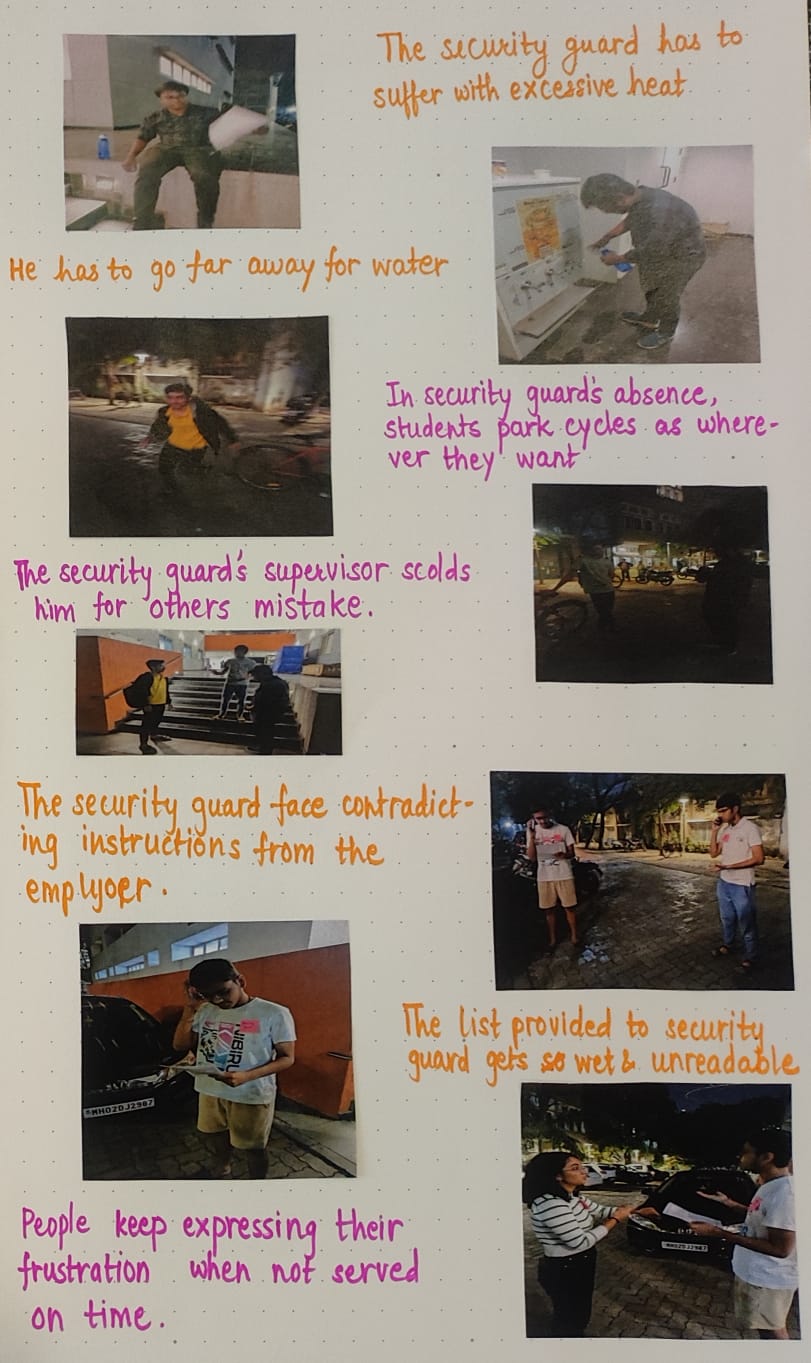 The security guard has to
suffer with excessive heat
He has to go far away for water
In security guard's absence,
students park cycles as where-
ver they want
The security guard's supervisor scolds
him for others mistake.
The security guard face contradict-
ing instructions from the
emplyoer.
The list provided to security
guard gets so wet & unreadable
MH02DJ2987
MH02DJ2987
People keep expressing their
frustration when not served
on time.